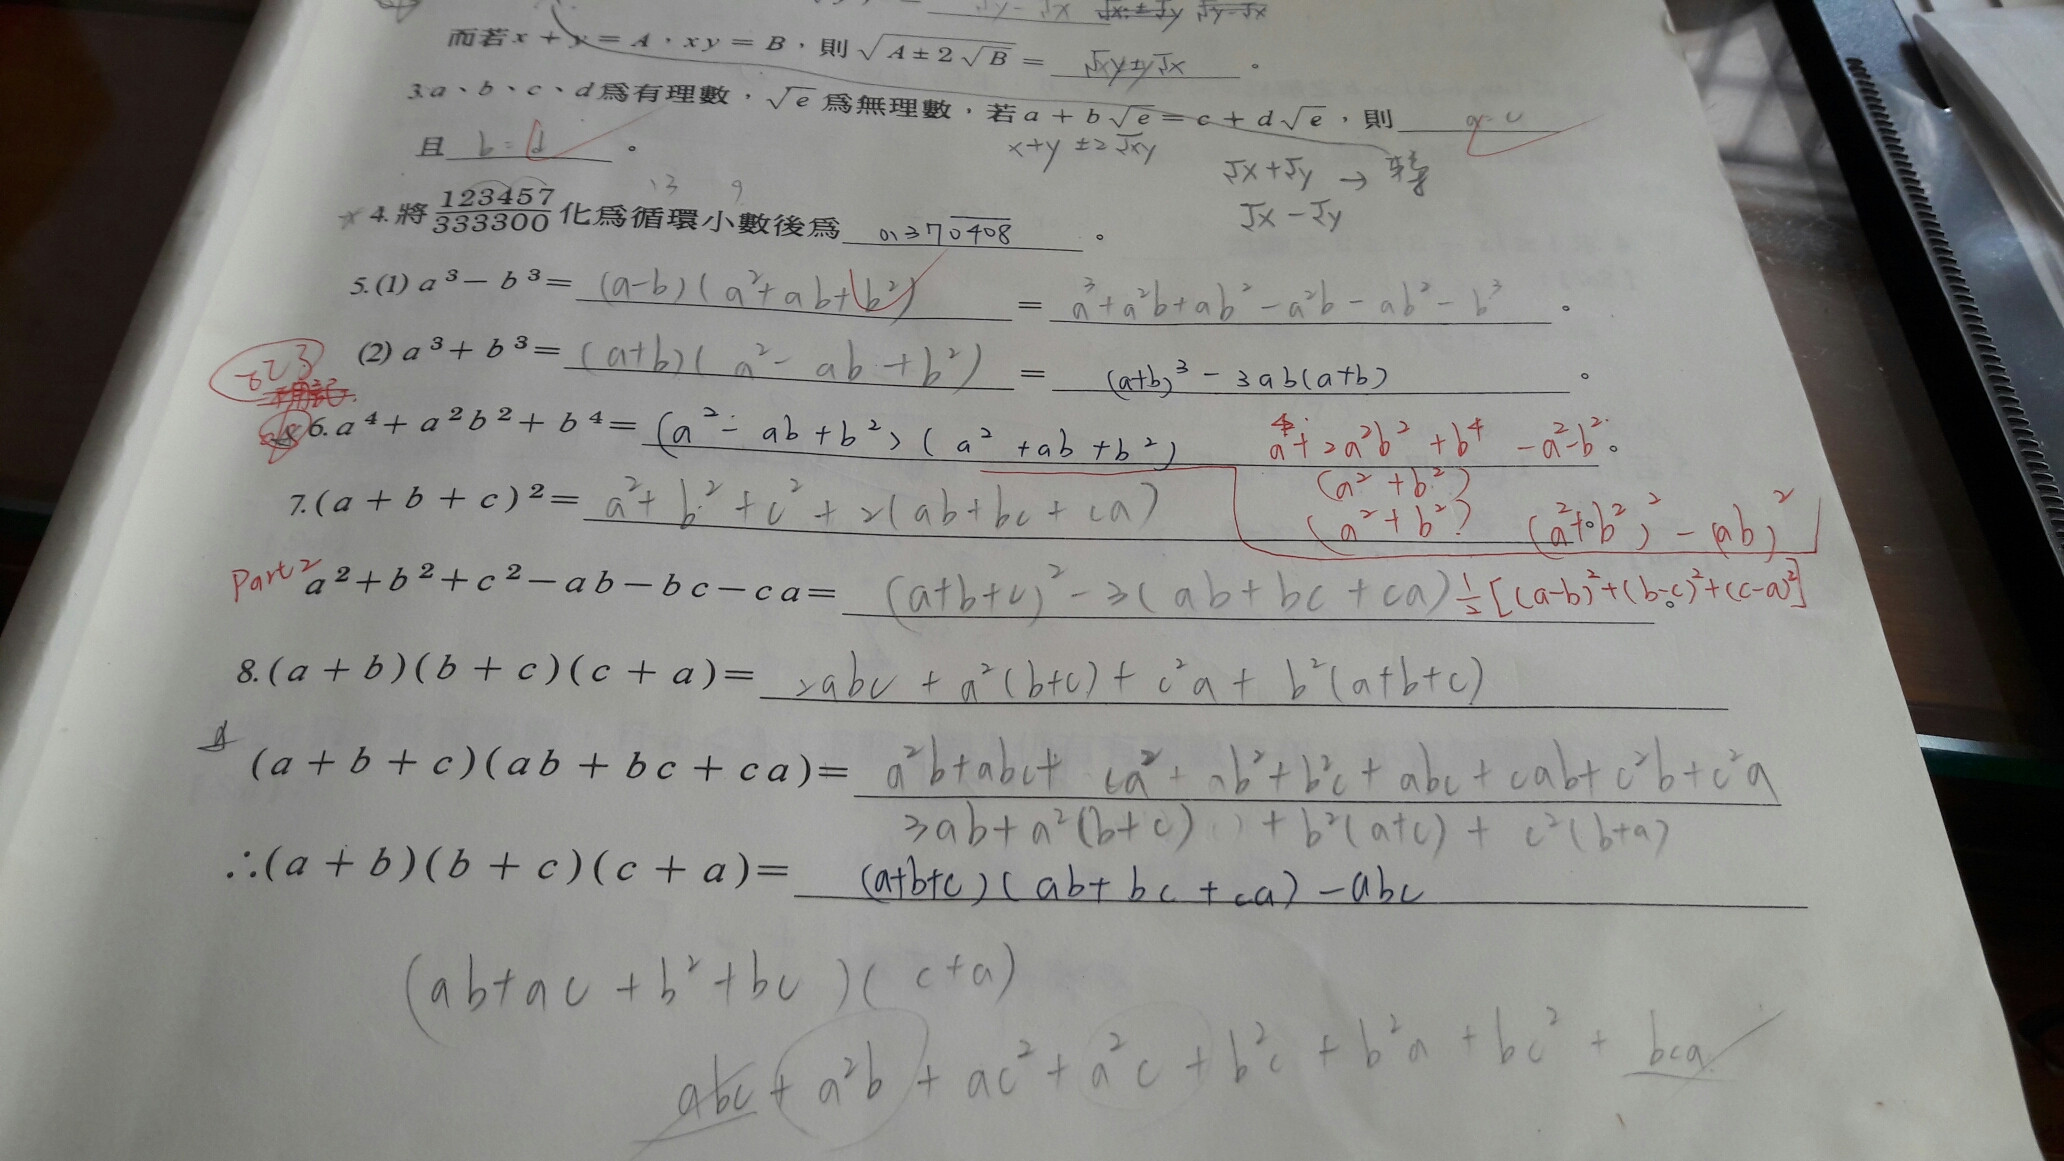 √y-√x √x±√y √y-√x
而若x+y=A,xy=B,則√(A±2√B)= √xy±y√x 。
3.a、b、c、d為有理數,√e為無理數,若a+b√e=c+d√e,則 a=c
且 b=d 。
x+y ±2√xy
√x+√y →
√x-√y
13 9
4.將123457/333300化為循環小數後為 0.370408 。
5.(1) a³-b³= (a-b)(a²+ab+b²) = a³+a²b+ab²-a²b-ab²-b³ 。
(2) a³+b³= (a+b)(a²-ab+b²) = (a+b)³-3ab(a+b) 。
6.a⁴+a²b²+b⁴= (a²-ab+b²)(a²+ab+b²) a⁴+2a²b²+b⁴ -a²-b² 。
(a²+b²)
(a²+b²) (a²+b²)²-(ab)²
7.(a+b+c)²= a²+b²+c²+2(ab+bc+ca) 。
Part2 a²+b²+c²-ab-bc-ca= (a+b+c)²-3(ab+bc+ca) ½[(a-b)²+(b-c)²+(c-a)²] 。
8.(a+b)(b+c)(c+a)= 2abc+a²(b+c)+c²a+b²(a+b+c)
(a+b+c)(ab+bc+ca)= a²b+abc+ca²+ab²+b²c+abc+cab+c²b+c²a
3ab+a²(b+c)+b²(a+c)+c²(b+a)
∴(a+b)(b+c)(c+a)= (a+b+c)(ab+bc+ca)-abc
(ab+ac+b²+bc)(c+a)
abc+a²b+ac²+a²c+b²c+b²a+bc²+bca